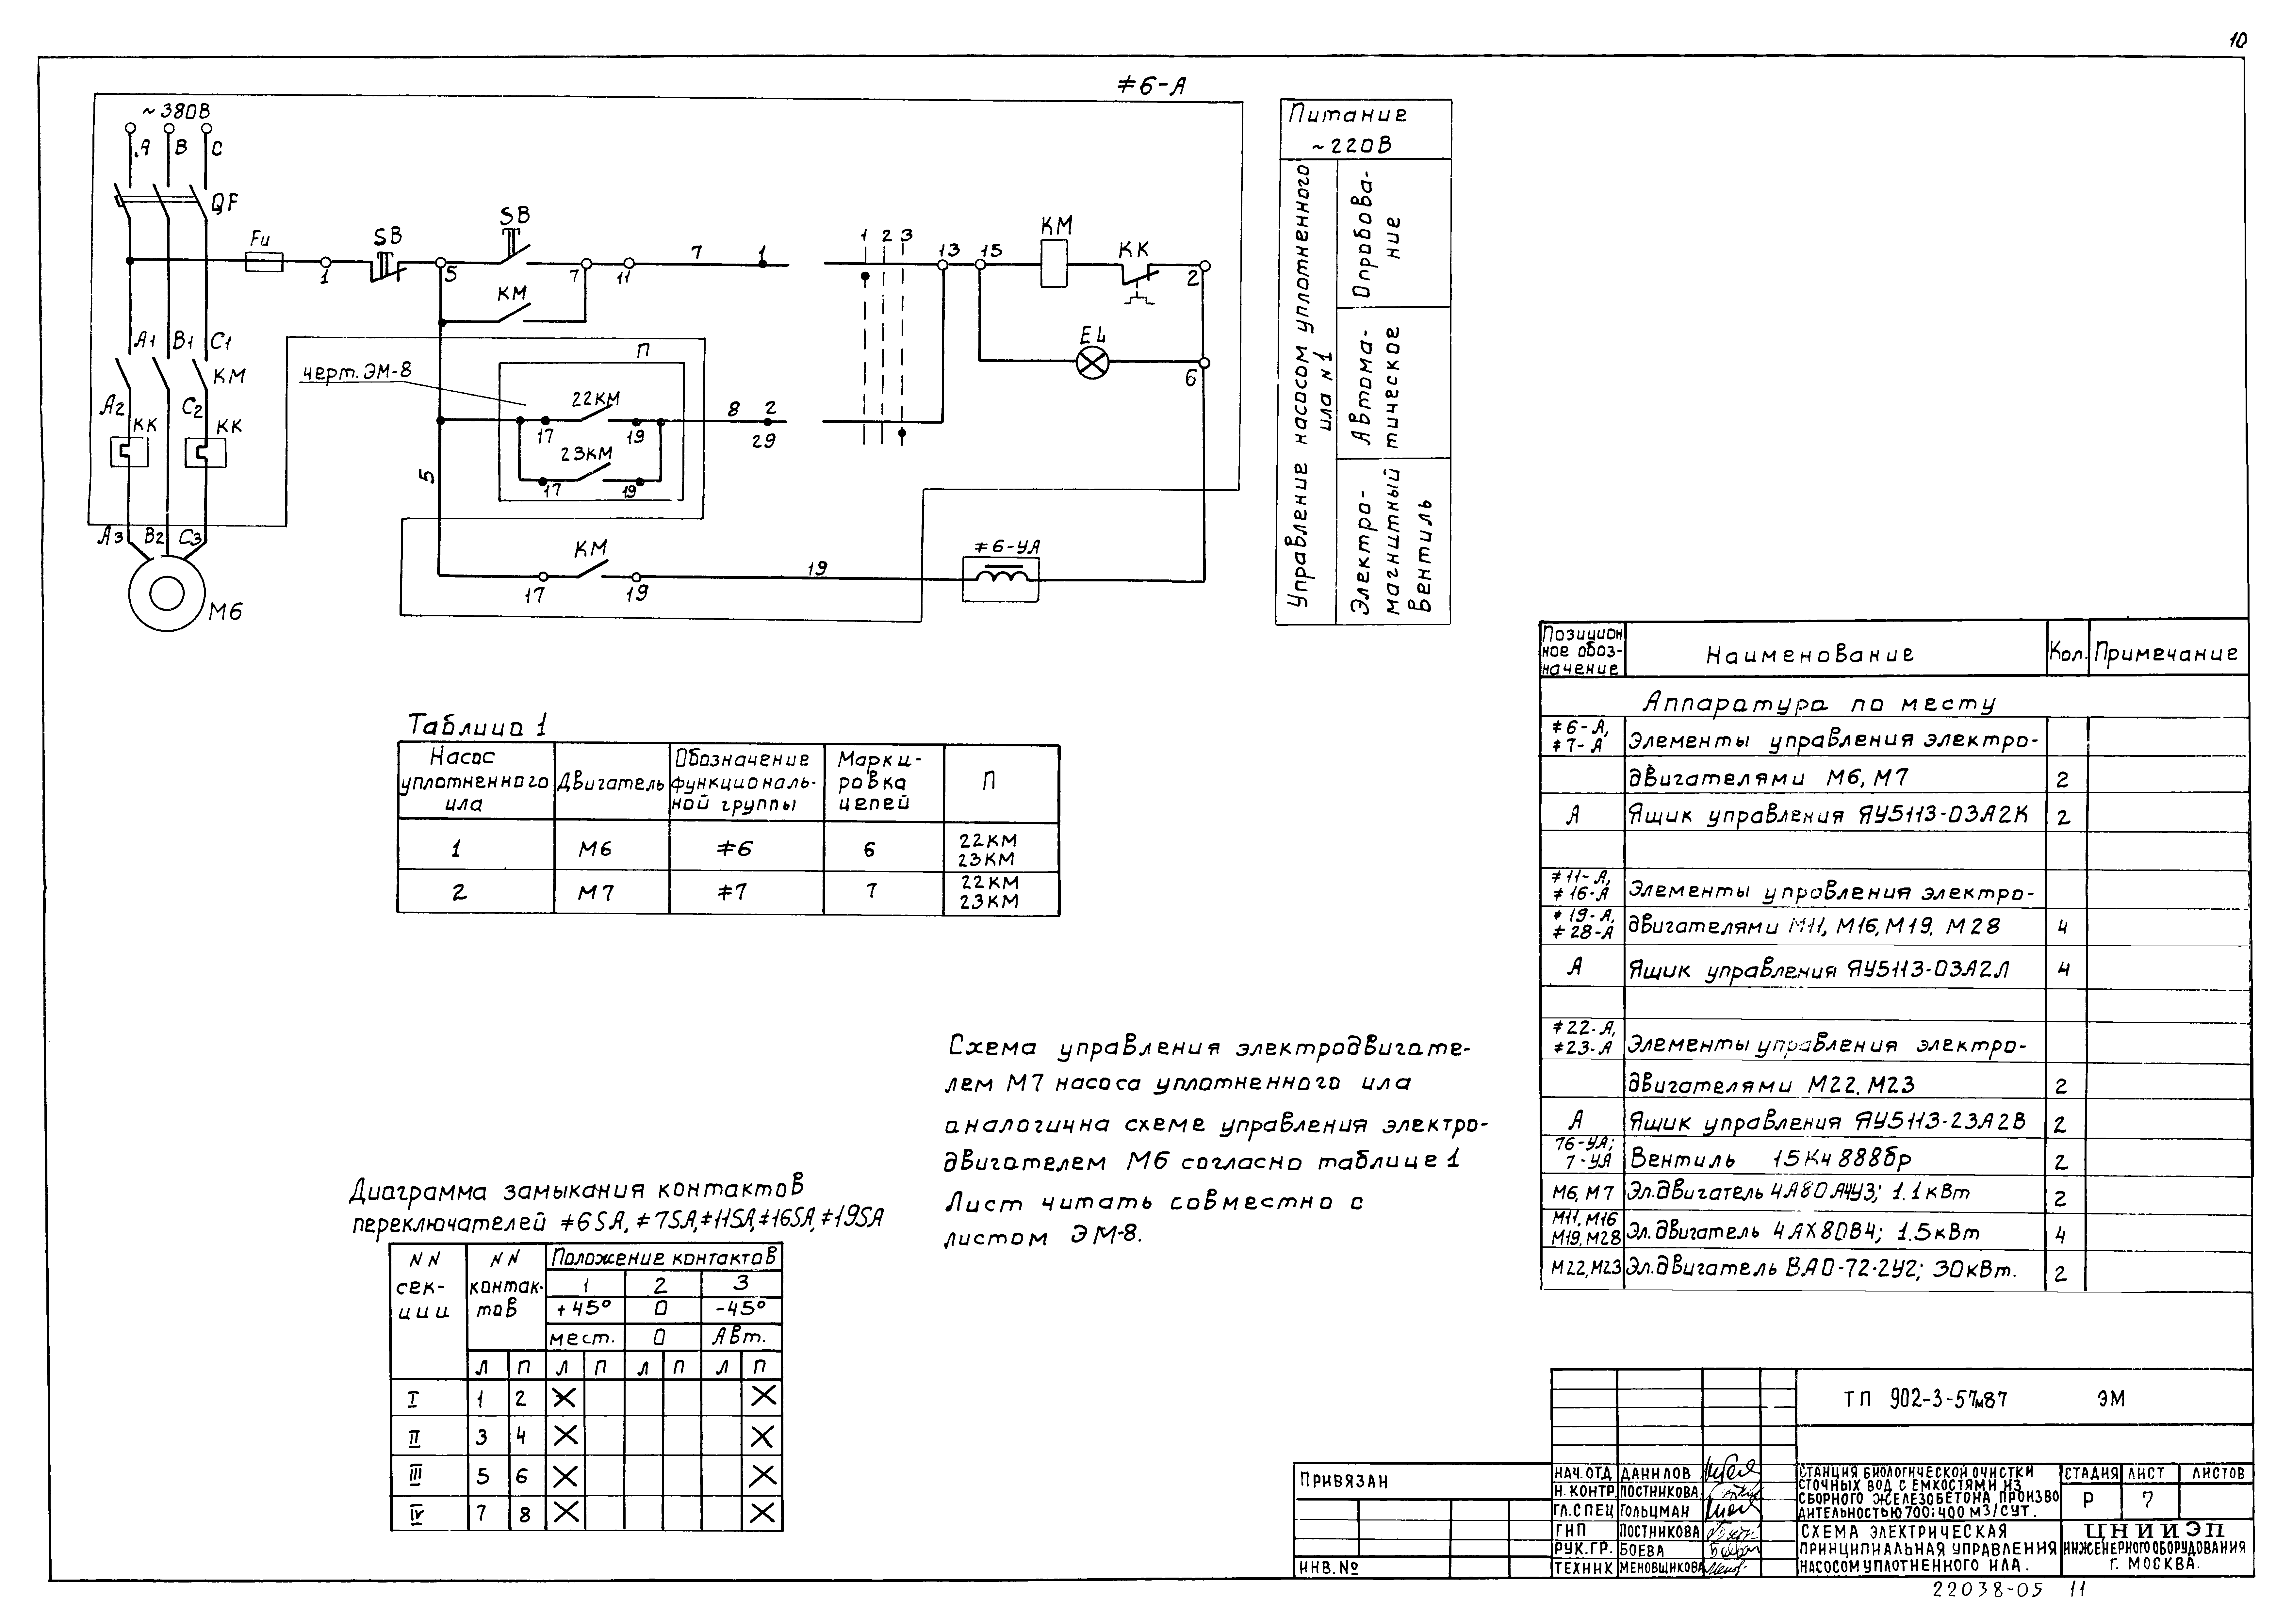 10
≠6-А
~380В
А В С
QF
Fu
SB
SB
КМ
КК
1 2 3
1 5 7 11 7 1 13 15 2
КМ
EL
6
А1 В1 С1
КМ
А2 С2
КК КК
черт. ЭМ-8
П
22КМ
17 19
8 2
29
23КМ
17 19
5
А3 В2 С3
М6
КМ
17 19
19
≠6-УА
Питание
~220В
Управление насосом уплотненного
ила N1
Опробова-
ние
Автома-
тическое
Электро-
магнитный
Вентиль
Таблица 1
Насос уплотненного ила
Двигатель
Обозначение функциональ-ной группы
Марки-ровка цепей
П
1 М6 ≠6 6 22КМ 23КМ
2 М7 ≠7 7 22КМ 23КМ
Схема управления электродвигате-
лем М7 насоса уплотненного ила
аналогична схеме управления электро-
двигателем М6 согласно таблице 1
Лист читать совместно с
листом ЭМ-8.
Диаграмма замыкания контактов
переключателей ≠6SA, ≠7SA, ≠11SA, ≠16SA, ≠19SA
NN сек-ции
NN контак-тов
Положение контактов
1 2 3
+45° 0 -45°
мест. 0 Авт.
Л П Л П Л П Л П
I 1 2 X X
II 3 4 X X
III 5 6 X X
IV 7 8 X X
Позицион ное обоз-начение
Наименование
Кол.
Примечание
Аппаратура по месту
≠6-А, ≠7-А Элементы управления электро-
двигателями М6, М7 2
А Ящик управления ЯУ5113-03А2К 2
≠11-А, ≠16-А Элементы управления электро-
≠19-А, ≠28-А двигателями М11, М16, М19, М28 4
А Ящик управления ЯУ5113-03А2Л 4
≠22-А, ≠23-А Элементы управления электро-
двигателями М22, М23 2
А Ящик управления ЯУ5113-23А2В 2
≠6-УА; 7-УА Вентиль 15Кч 888бр 2
М6, М7 Эл.двигатель 4А80А4У3; 1.1кВт 2
М11, М16 М19, М28 Эл.двигатель 4АХ80В4; 1.5кВт 4
М22, М23 Эл.двигатель ВАО-72-2У2; 30кВт. 2
ТП 902-3-57м87 ЭМ
ПРИВЯЗАН
ИНВ.№
НАЧ.ОТД ДАНИЛОВ
Н.КОНТР. ПОСТНИКОВА
ГЛ.СПЕЦ ГОЛЬЦМАН
ГИП ПОСТНИКОВА
РУК.ГР. БОЕВА
ТЕХНИК МЕНОВЩИКОВА
СТАНЦИЯ БИОЛОГИЧЕСКОЙ ОЧИСТКИ
СТОЧНЫХ ВОД С ЕМКОСТЯМИ ИЗ
СБОРНОГО ЖЕЛЕЗОБЕТОНА ПРОИЗВО
ДИТЕЛЬНОСТЬЮ 700; 400 М3/СУТ.
СТАДИЯ ЛИСТ ЛИСТОВ
Р 7
СХЕМА ЭЛЕКТРИЧЕСКАЯ
ПРИНЦИПИАЛЬНАЯ УПРАВЛЕНИЯ
НАСОСОМ УПЛОТНЕННОГО ИЛА.
ЦНИИЭП
ИНЖЕНЕРНОГО ОБОРУДОВАНИЯ
Г. МОСКВА.
22038-05 11